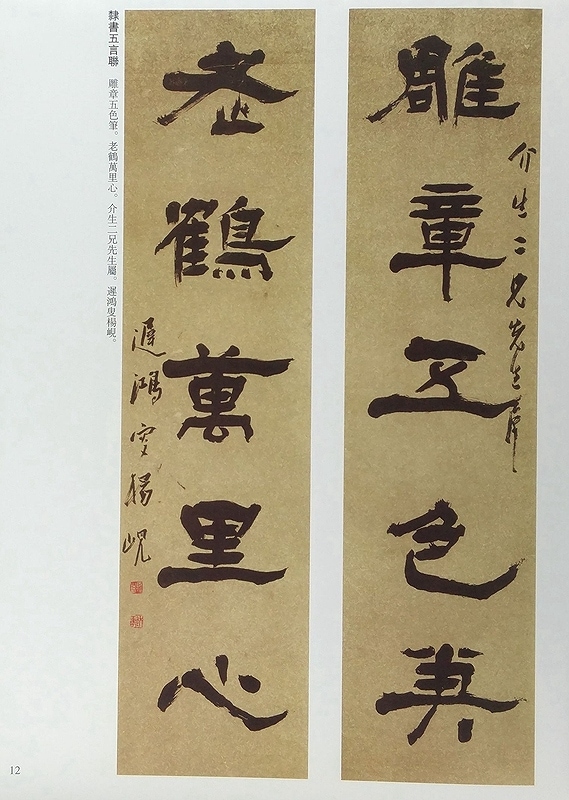 介生二兄先生屬
雕章五色筆
老鶴萬里心
遲鴻叟楊峴
隸書五言聯　雕章五色筆。老鶴萬里心。介生二兄先生屬。遲鴻叟楊峴。
12